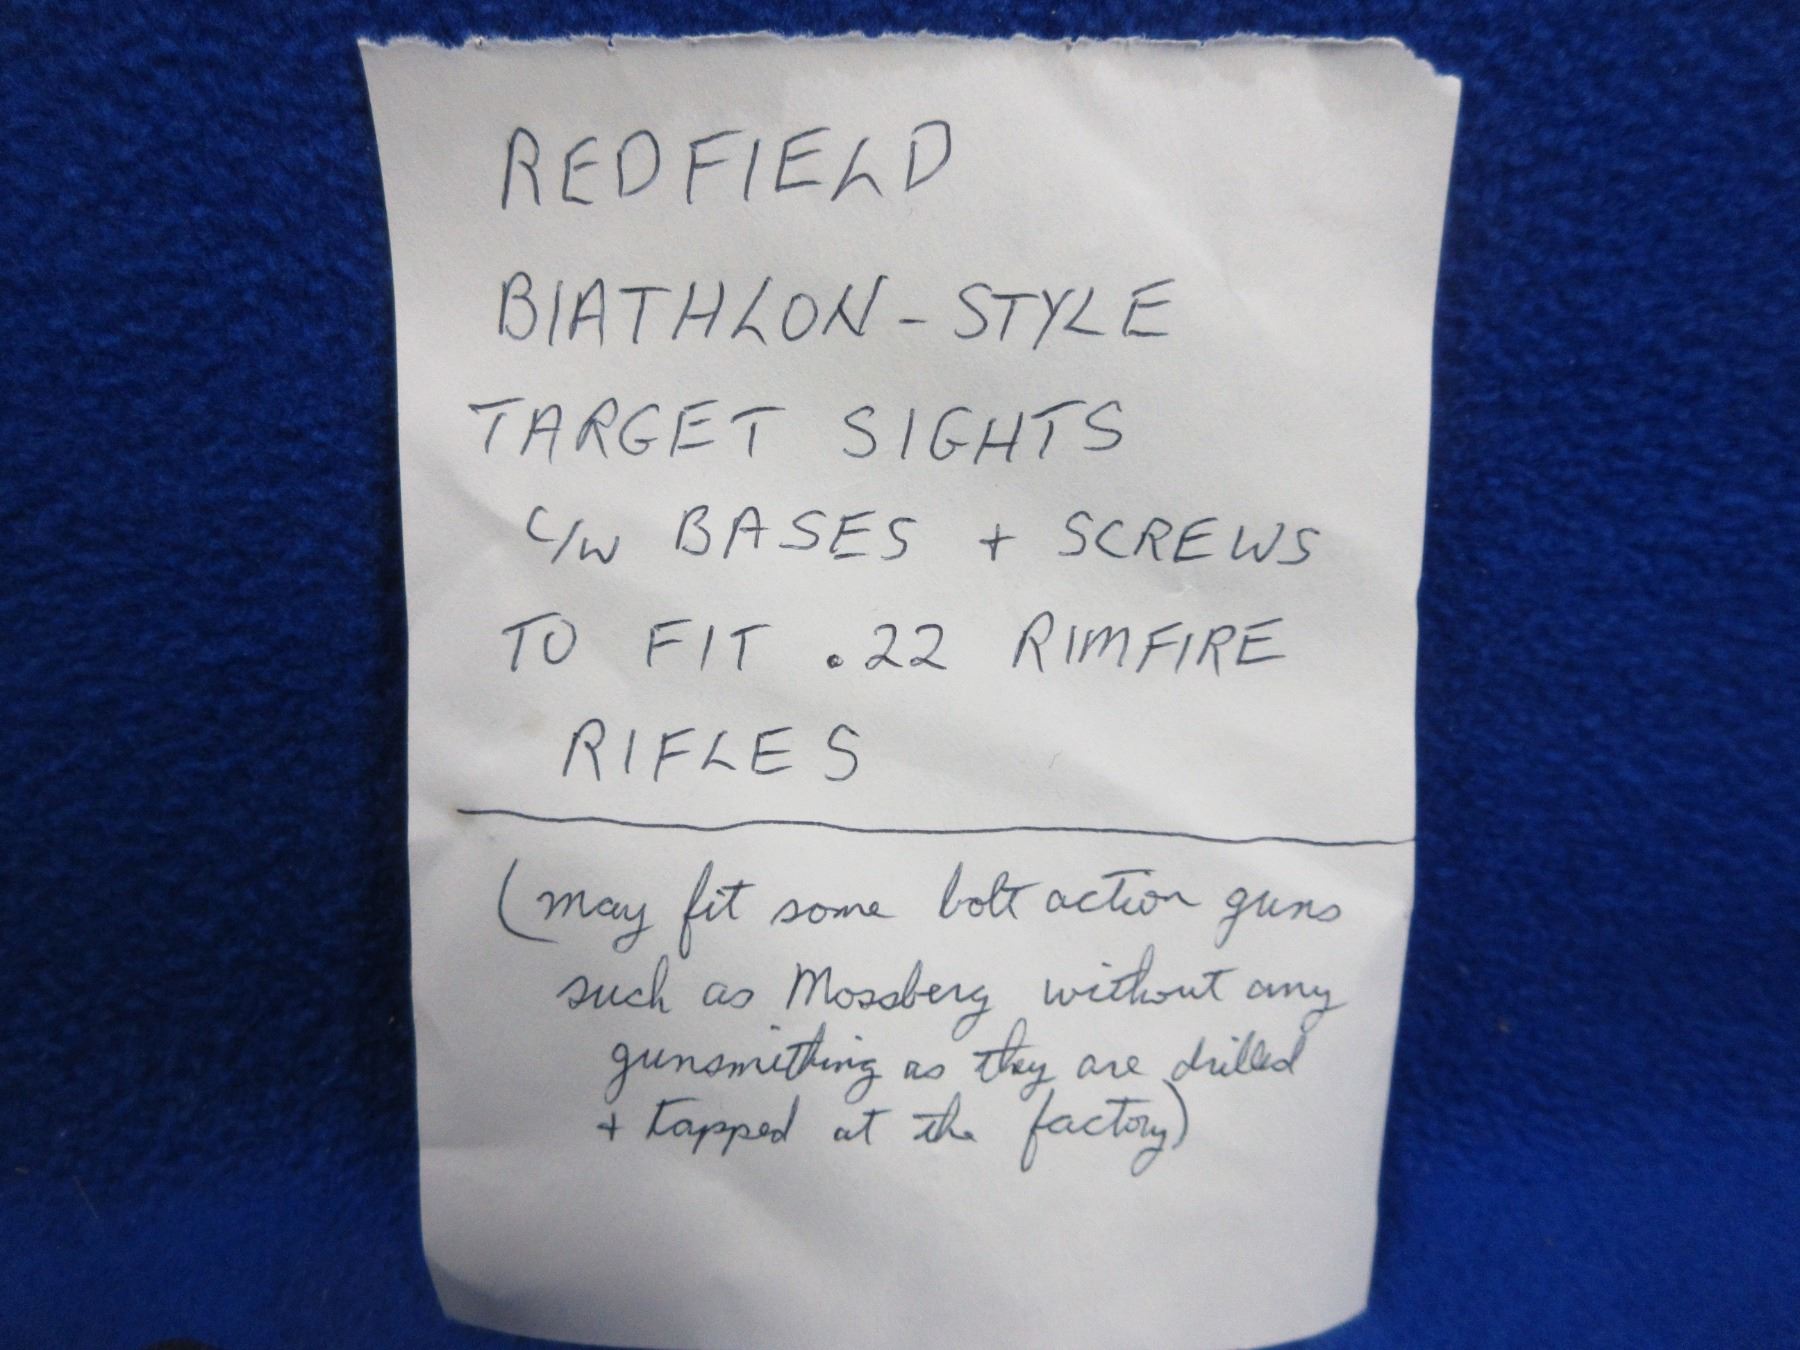 REDFIELD
BIATHLON-STYLE
TARGET SIGHTS
C/W BASES + SCREWS
TO FIT .22 RIMFIRE
RIFLES
(may fit some bolt action guns
such as Mossberg without any
gunsmithing as they are drilled
+ tapped at the factory)